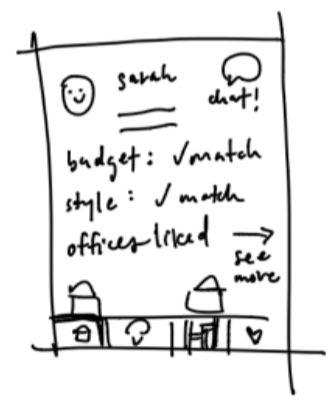 sarah
chat!
budget: ✓match
style: ✓ match
offices liked →
see
more